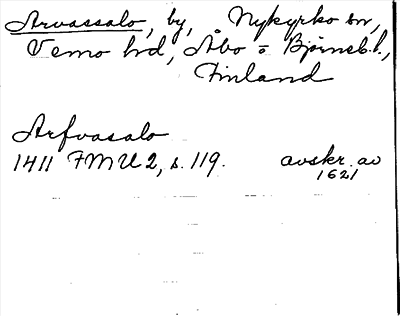 Arvassalo, by, Nykyrko sn,
Vemo hd, Åbo o Björneb. l.,
Finland
Arfvasalo
1411 FMU 2, s. 119. avskr. av
1621